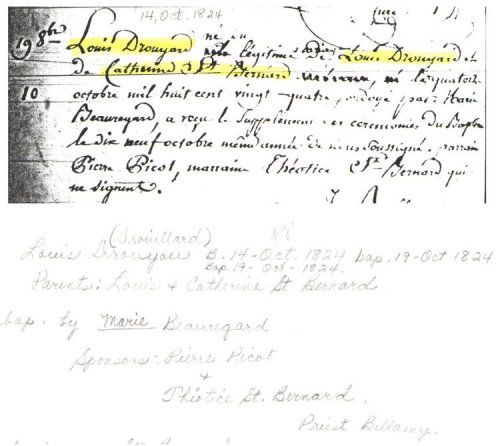 14, Oct. 1824
19 8bre
10
Louis Drouyard né en légitime de Louis Drouyard et
de Catherine St Bernard né le quatorze
octobre mil huit cent vingt quatre, ondoyé par Marie
Beauregard, a reçu le Supplement des ceremonies du Baptême
le dix neuf octobre même année de nous soussigné. parrain
Pierre Picot, marraine Théotice St Bernard qui
ne signent.
(Drouillard)
Louis Drouyou B. 14-Oct. 1824 bap. 19-Oct 1824
bap. 19-Oct-1824.
Parents: Louis & Catherine St Bernard
bap. by Marie Beauregard
Sponsors: Pierre Picot
+
Théotice St. Bernard.
Priest Bellamy.